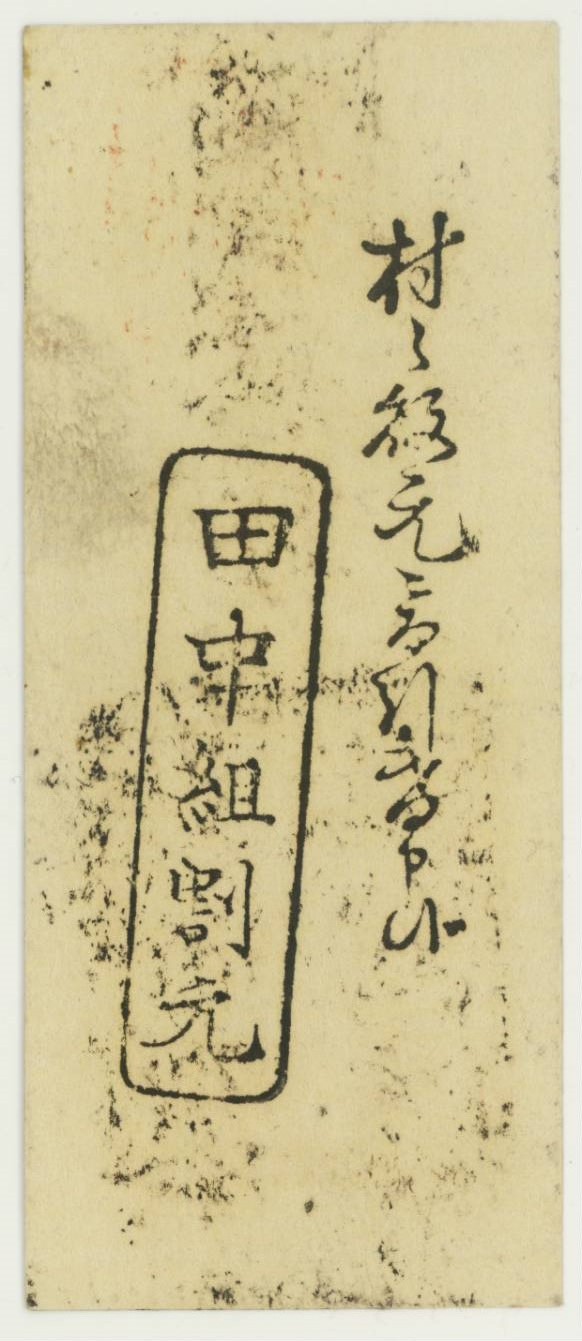 村々役元ニ而引替可申
田中組割元